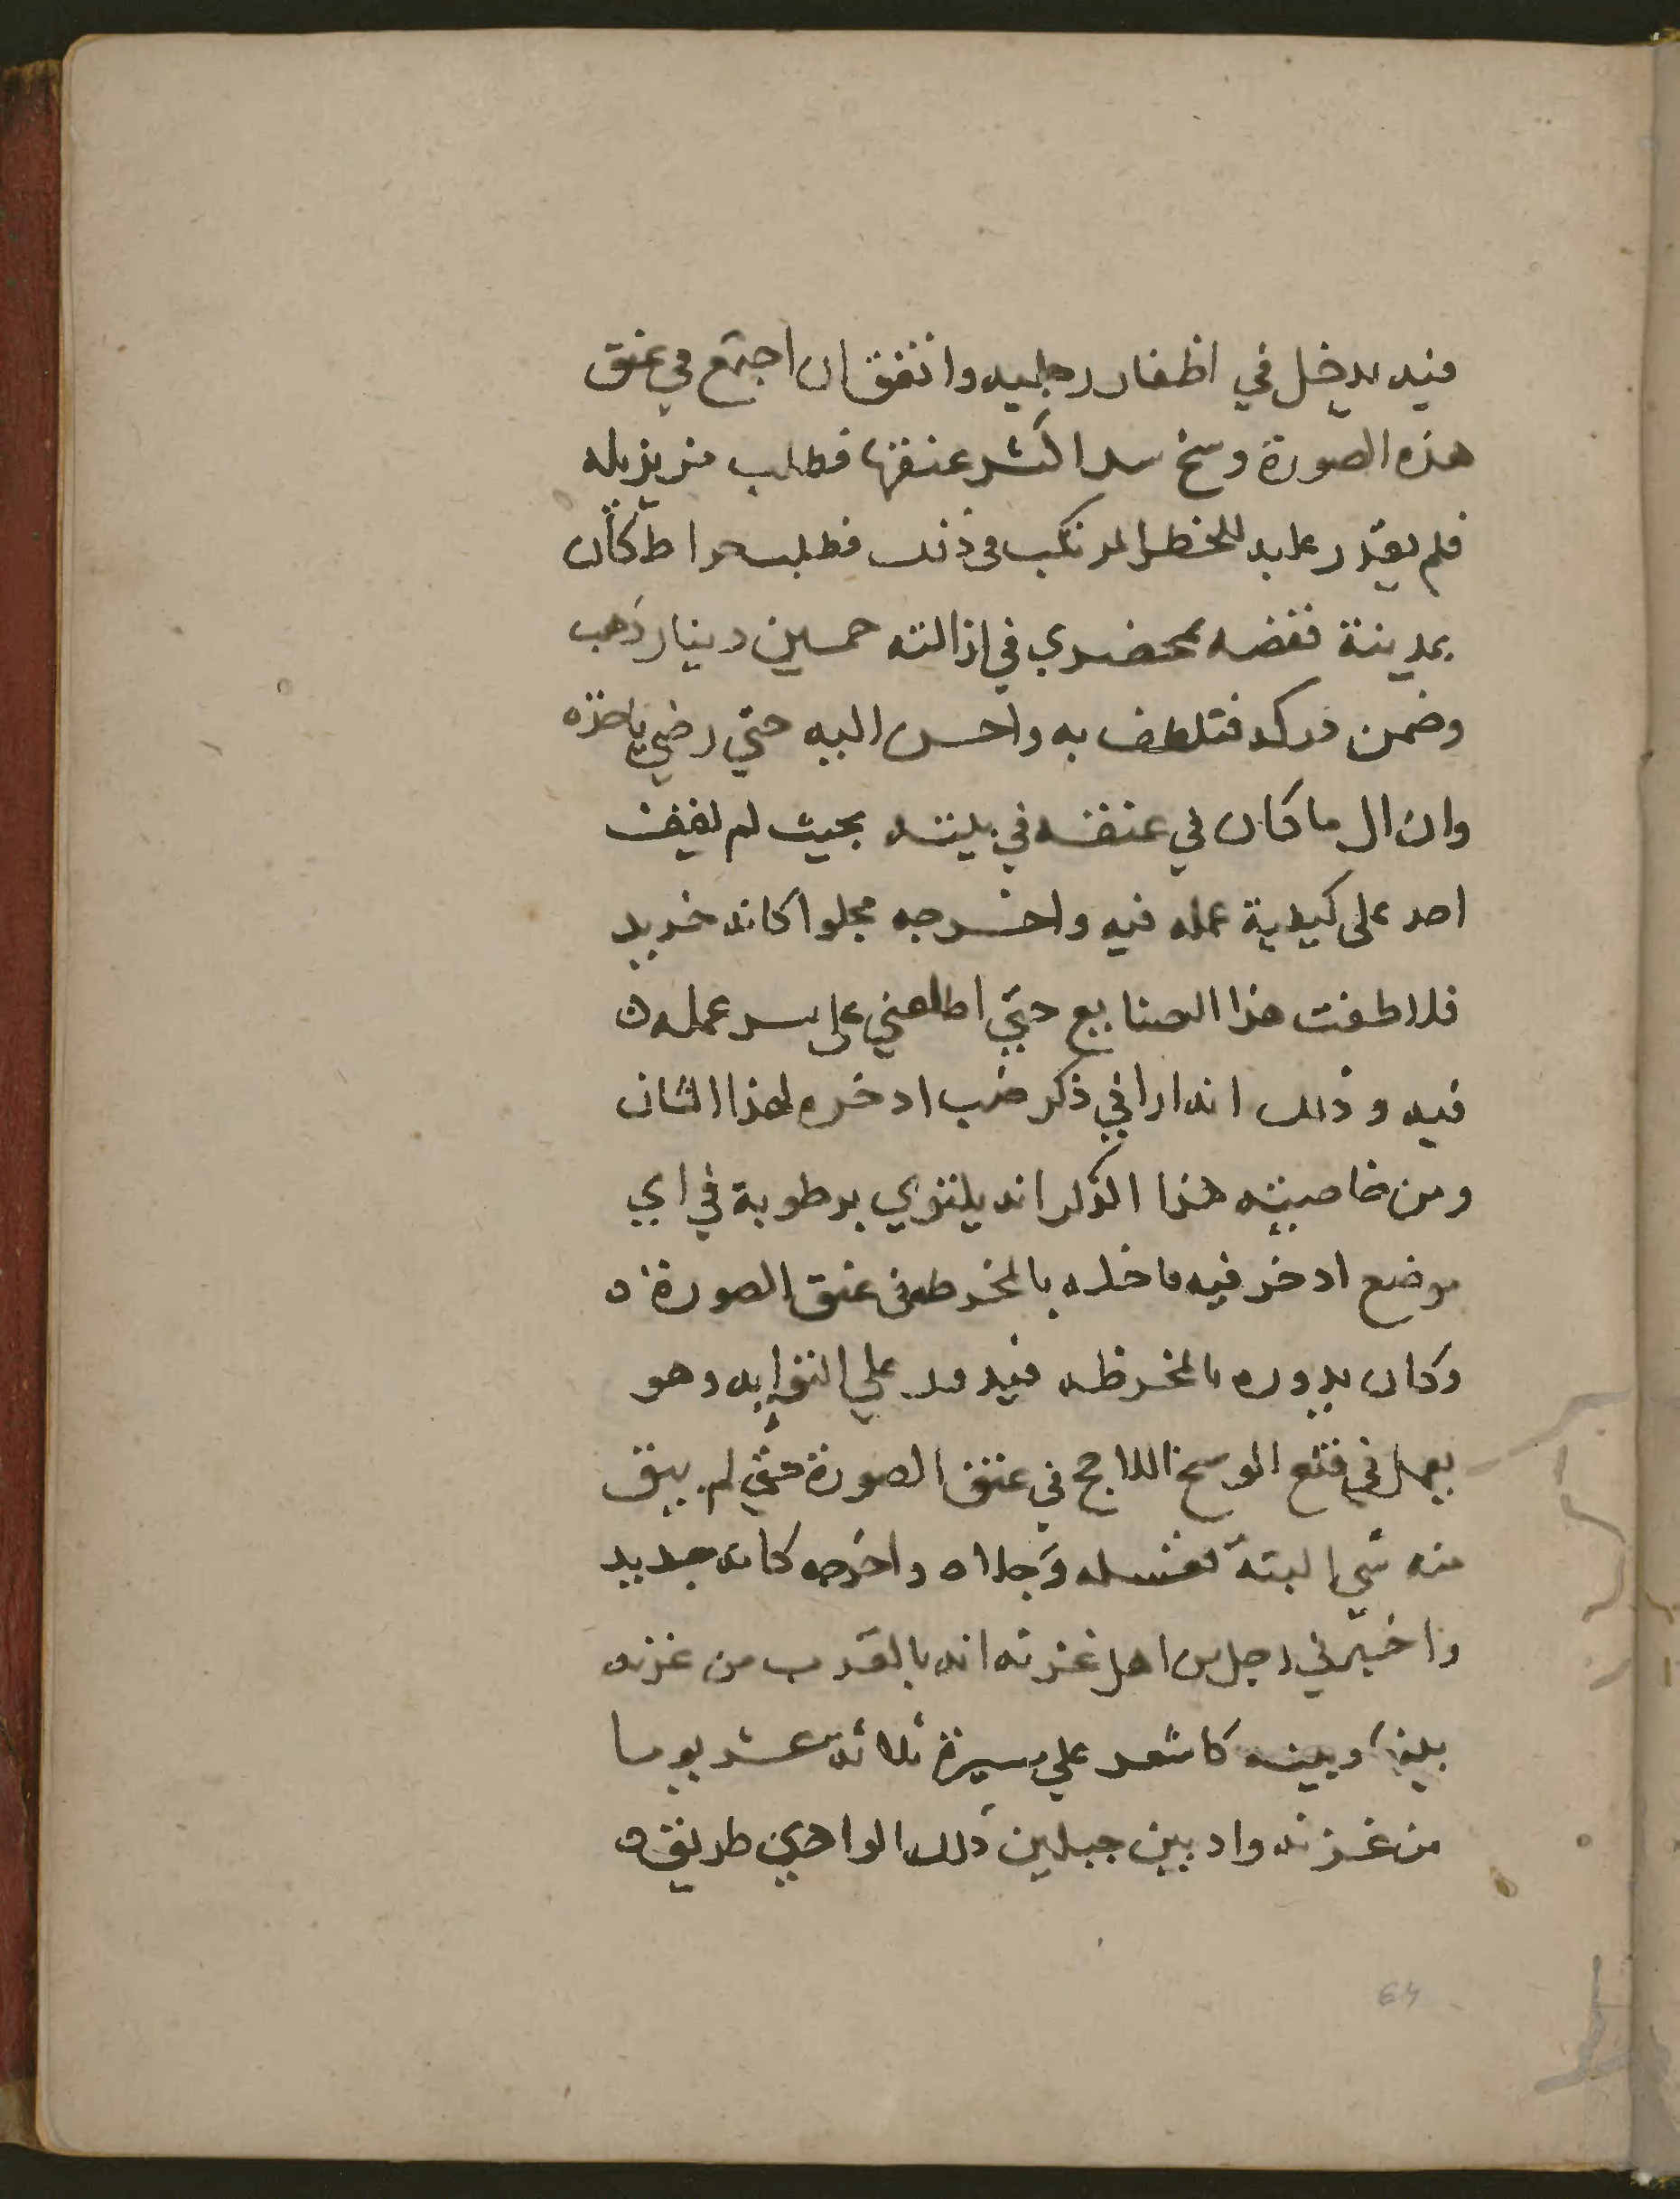 فيه يدخل في اظفار رجليه واتفق ان اجتمع في عنق
هذه الصورة وسخ سد اكثر عنقها فطلب من يزيله
فلم يقدر عليه للخطر المرتكب في ذلك فطلب خراط كان
بمدينة قفصه بمحضري في ازالته خمسين دينار ذهب
وضمن دركه فتلطف به واحسن اليه حتي رضي باخذه
وازال ما كان في عنقه في بيته بحيث لم يقف
احد على كيفية عمله فيه واخرجه مجلوا كانه جديد
فلاطفت هذا الصنايع حتي اطلعني على سر عمله
فيه وذلك انه اراني ذكر ضب ادخره لهذا الشان
ومن خاصيته هذا الذكر انه يلتوي برطوبة في اي
موضع ادخر فيه فاخله بالمخرطه في عنق الصورة
وكان يدوره بالمخرطه فيدور علي التوايه وهو
يعمل في قلع الوسخ اللاحج في عنق الصورة حتي لم يبق
منه شي البتة فغسله وجلاه واخرجه كانه جديد
واخبرني رجل من اهل غزنه انه بالقرب من غزنه
بينها وبين كاشغر علي مسيرة ثلاثة عشر يوما
من غزنه واد بين جبلين ذلك الوادي طريق
64